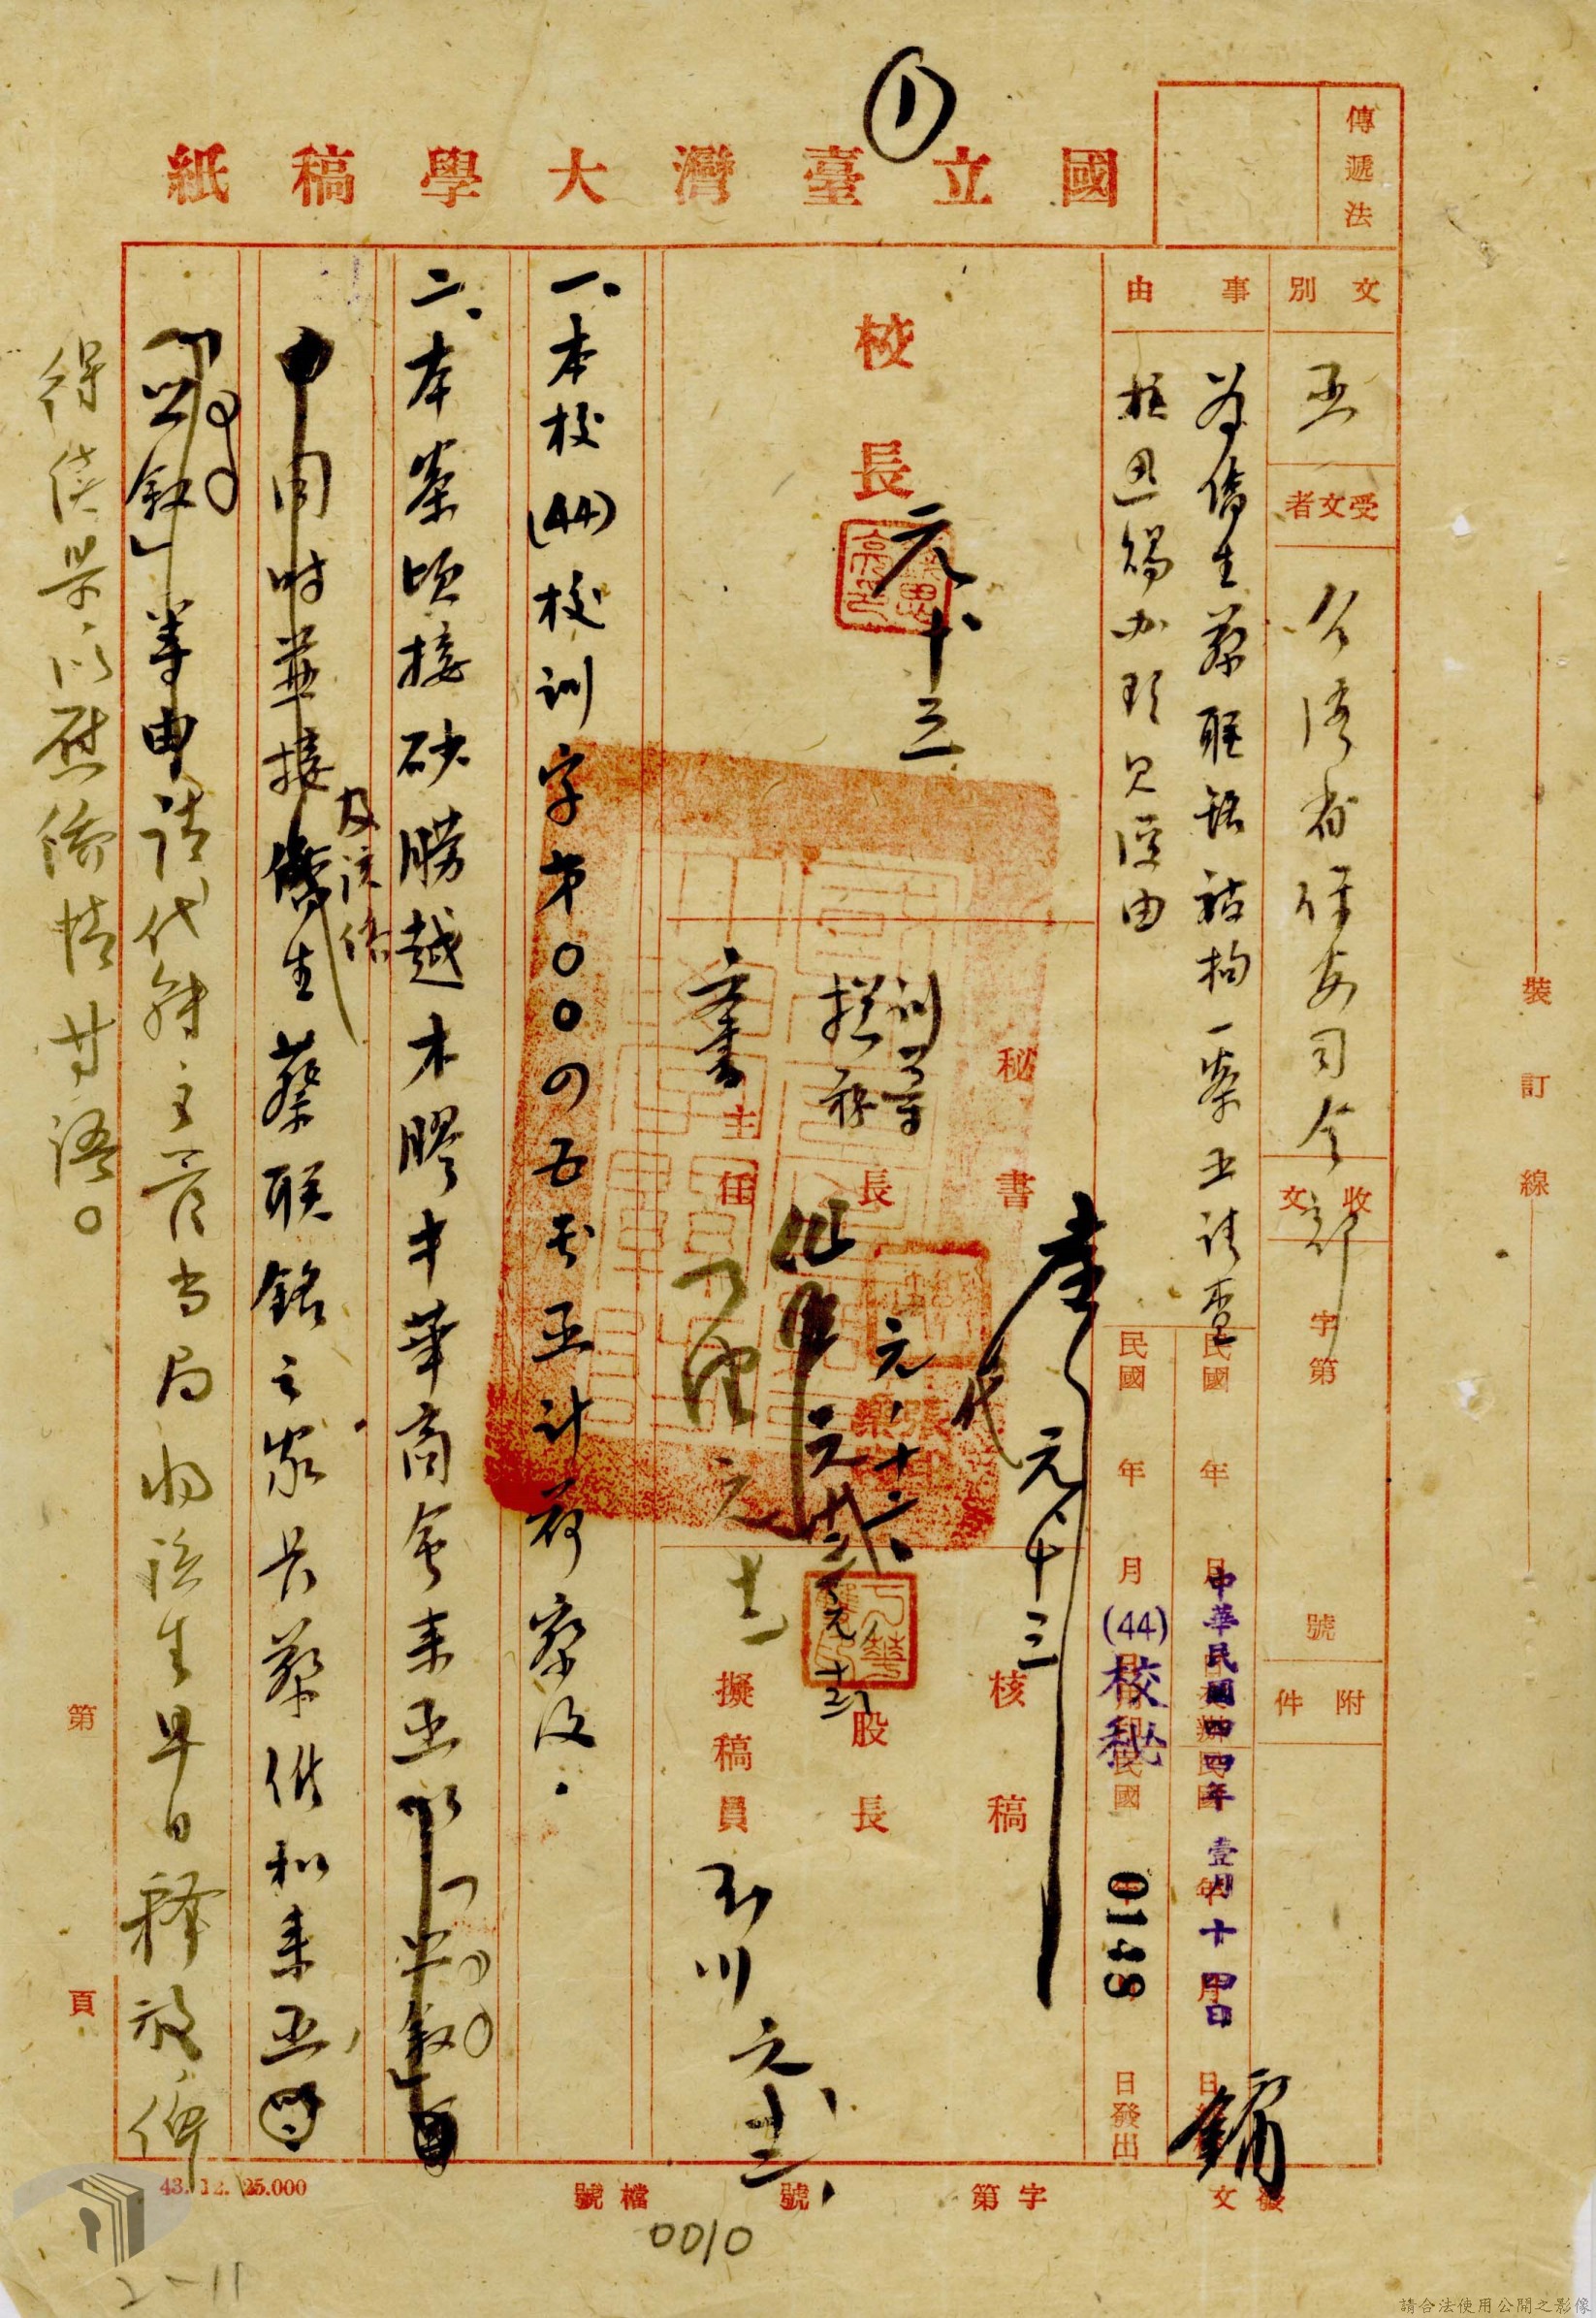 國立臺灣大學稿紙
傳遞法
文別
函
受文者
台灣省保安司令部
收文
字第
號
附件
事由
為僑生蔡聯銘被拘一案函請查
核迅賜辦理見復由
民國 年 月 日
中華民國四四年壹月十四日
(44)校秘
0148
日發出
校長
元、十三
秘書
代
元、十三
訓導長
主任
文書
元、十六
核稿
股長
擬稿員
元、十二
一、本校(44)校訓字第〇〇四五號函計荷察及。
二、本案頃接砂朥越木膠中華商會來函
「照敘」
同時並接僑生蔡聯銘之家長蔡供和來函
及該僑
「照敘」等由請代轉主管當局將該生早日釋放,俾
得續學,以慰僑情為禱。
第 頁
裝訂線
43.12.25.000
檔號
號
字第
發文
0010
2-11
請合法使用公開之影像